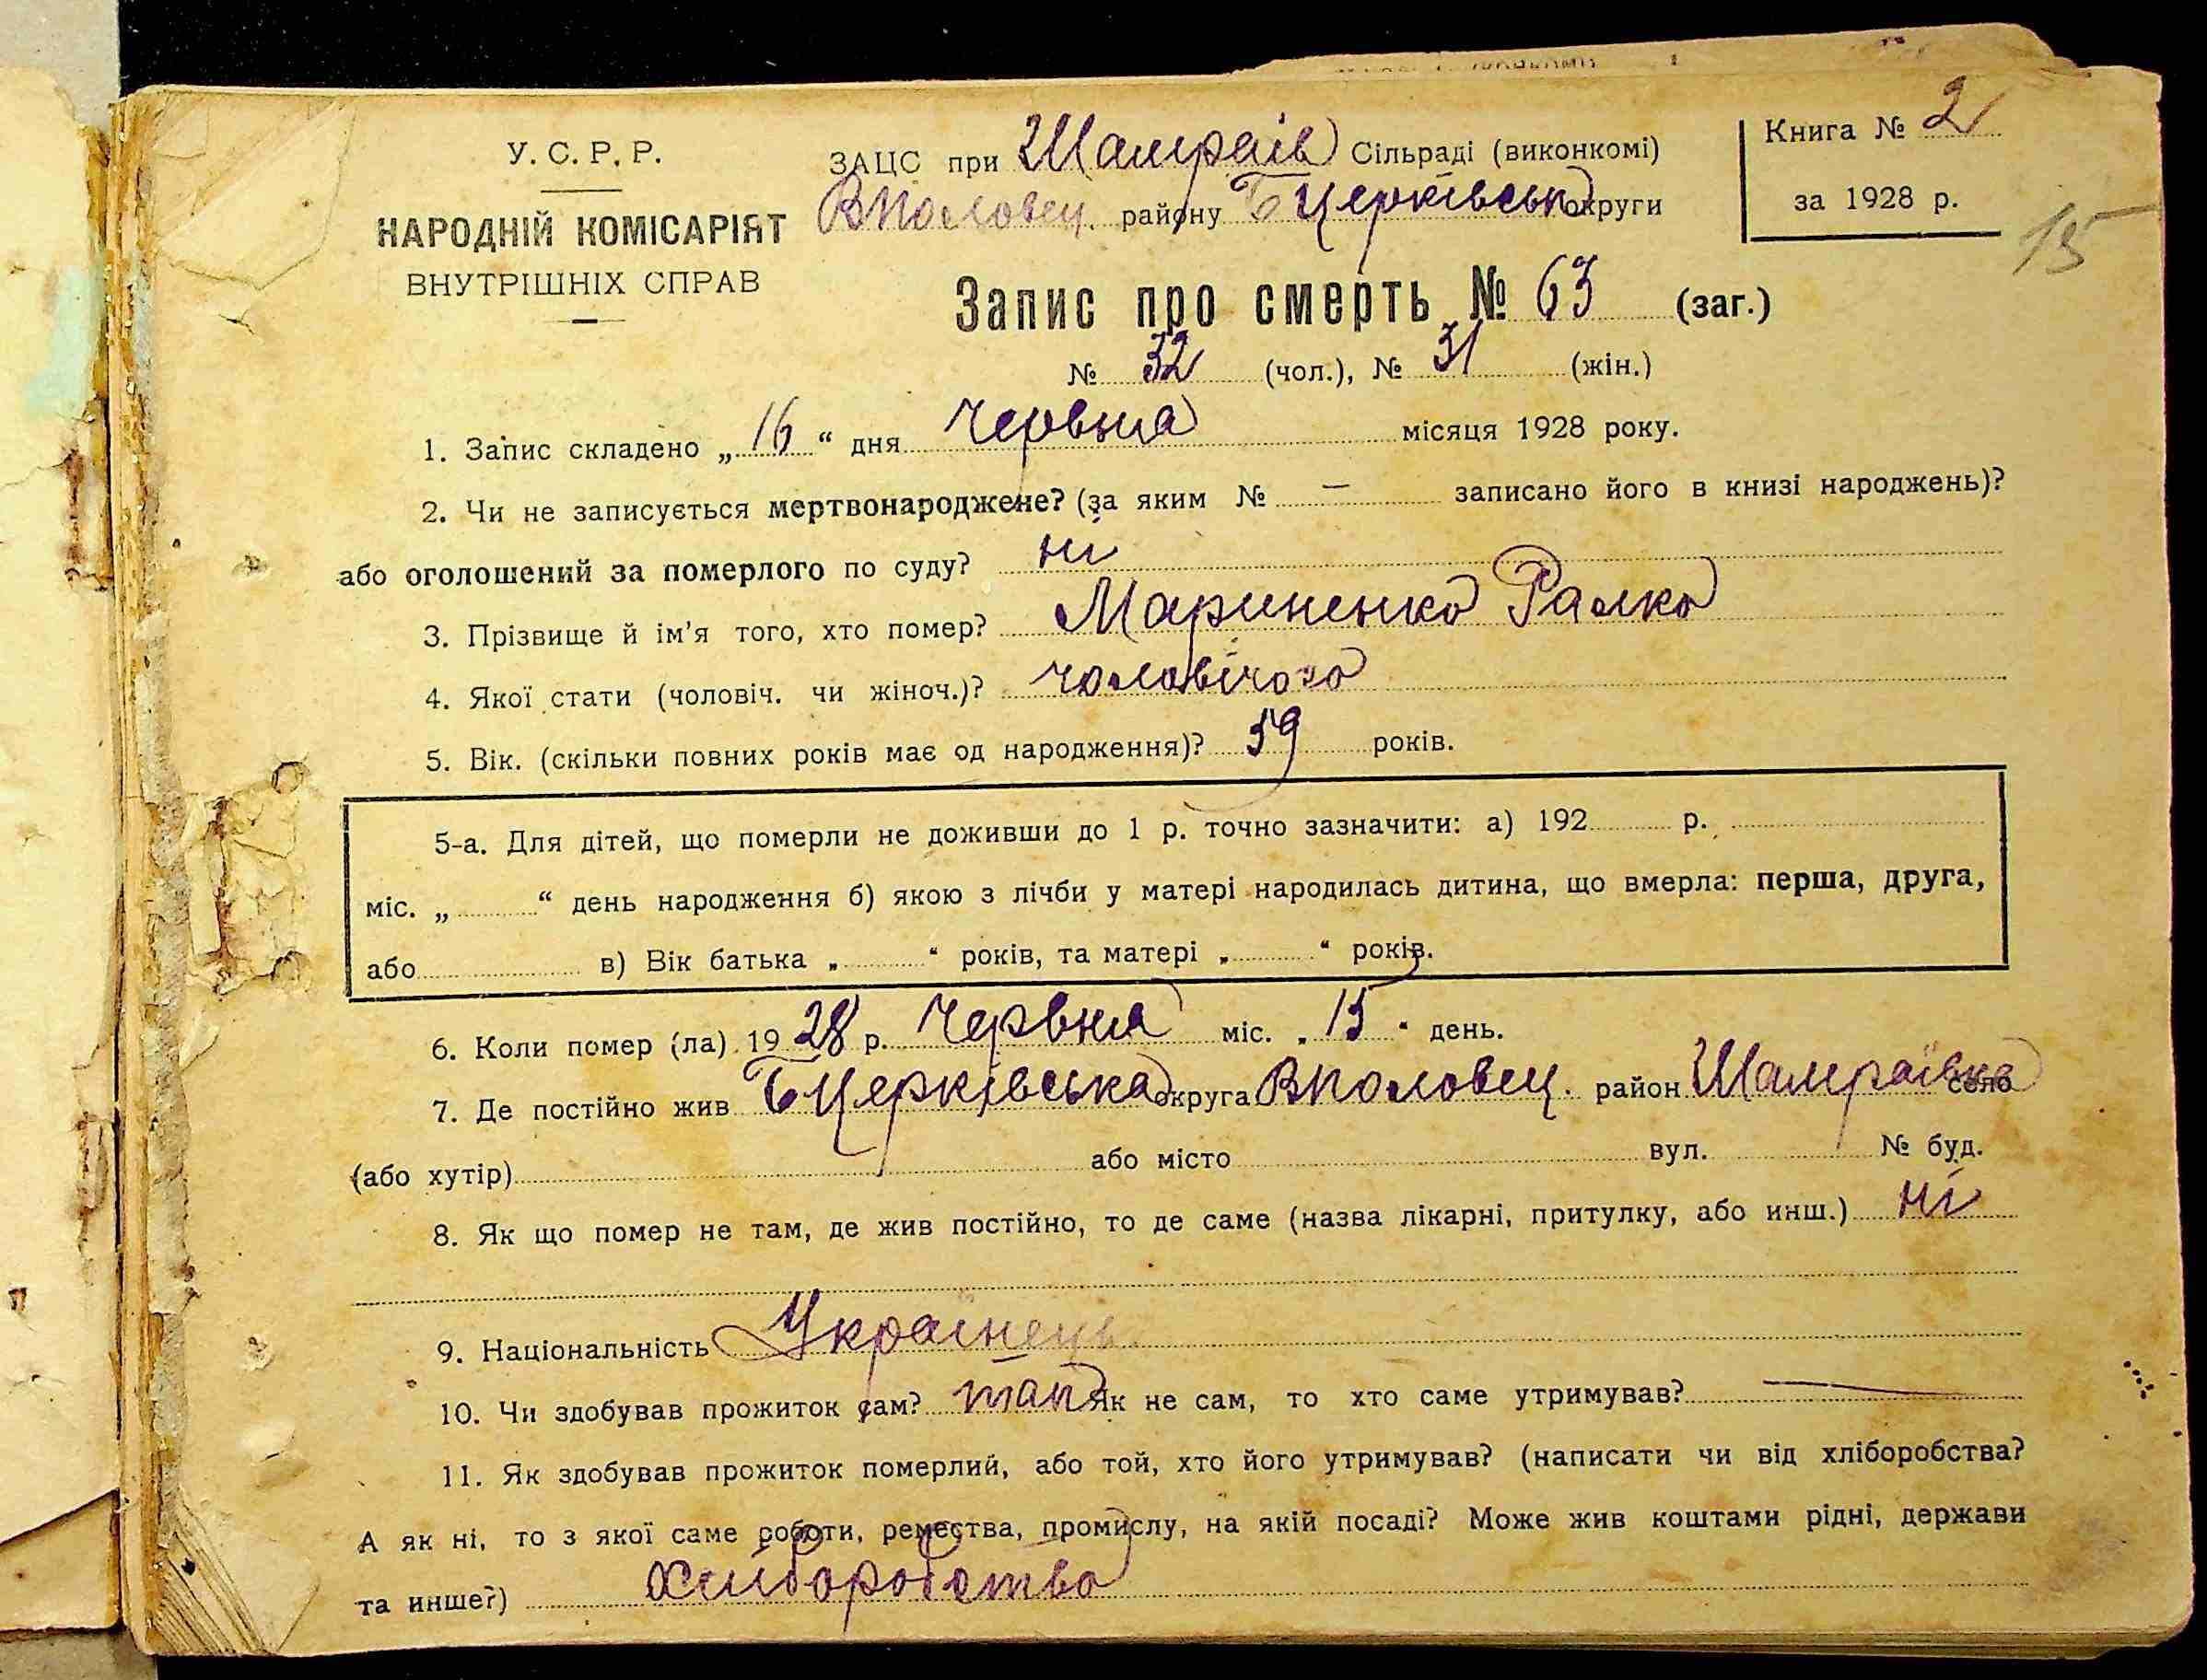 У. С. Р. Р.
НАРОДНІЙ КОМІСАРІЯТ
ВНУТРІШНІХ СПРАВ
ЗАЦС при Шамраїв Сільраді (виконкомі)
ВПоловец. району БЦерківськ округи
Книга № 2
за 1928 р.
15
Запис про смерть № 63 (заг.)
№ 32 (чол.), № 31 (жін.)
1. Запис складено „ 16 “ дня Червня місяця 1928 року.
2. Чи не записується мертвонароджене? (за яким № — записано його в книзі народжень)?
або оголошений за померлого по суду? ні
3. Прізвище й ім'я того, хто помер? Мариненко
4. Якої стати (чоловіч. чи жіноч.)? чоловічого
5. Вік. (скільки повних років має од народження)? 59 років.
5-а. Для дітей, що померли не доживши до 1 р. точно зазначити: а) 192 р.
міс. „ “ день народження б) якою з лічби у матері народилась дитина, що вмерла: перша, друга,
або в) Вік батька „ “ років, та матері „ “ років.
6. Коли помер (ла) 1928 р. Червня міс. „ 15 “ день.
7. Де постійно жив БЦерківська округа ВПоловец. район Шамраївка село
(або хутір) або місто вул. № буд.
8. Як що помер не там, де жив постійно, то де саме (назва лікарні, притулку, або инш.) ні
9. Національність Українець
10. Чи здобував прожиток сам? так Як не сам, то хто саме утримував? —
11. Як здобував прожиток померлий, або той, хто його утримував? (написати чи від хліборобства?
А як ні, то з якої саме роботи, ремества, промислу, на якій посаді? Може жив коштами рідні, держави
та инше?) Хліборобство